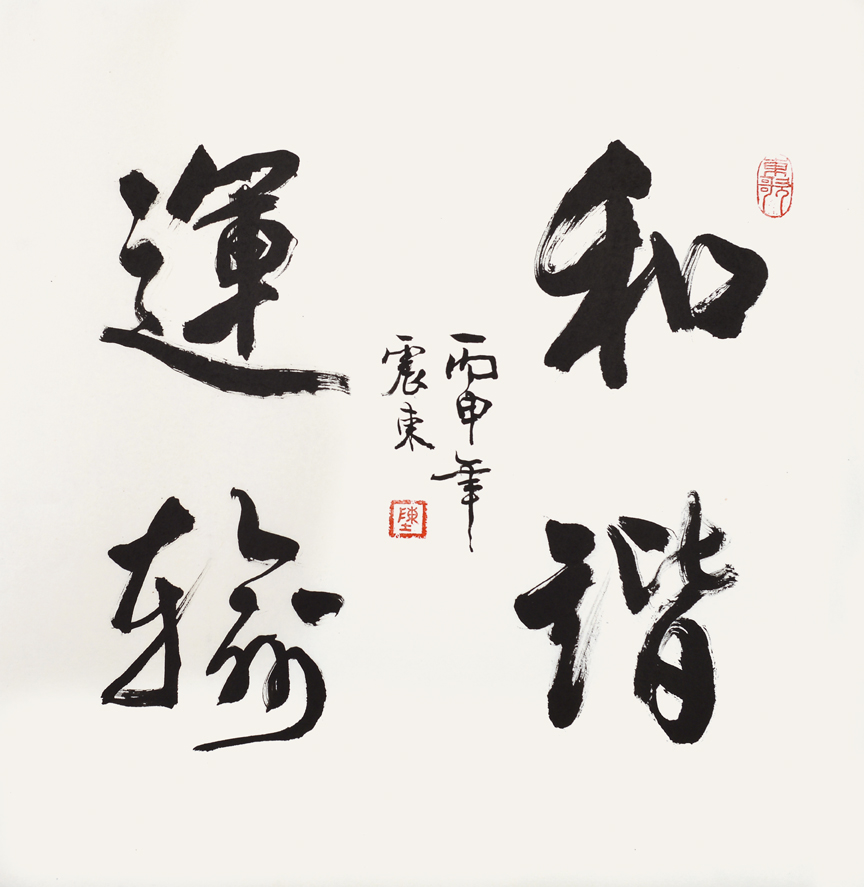 和諧
運輸
丙申年
震東